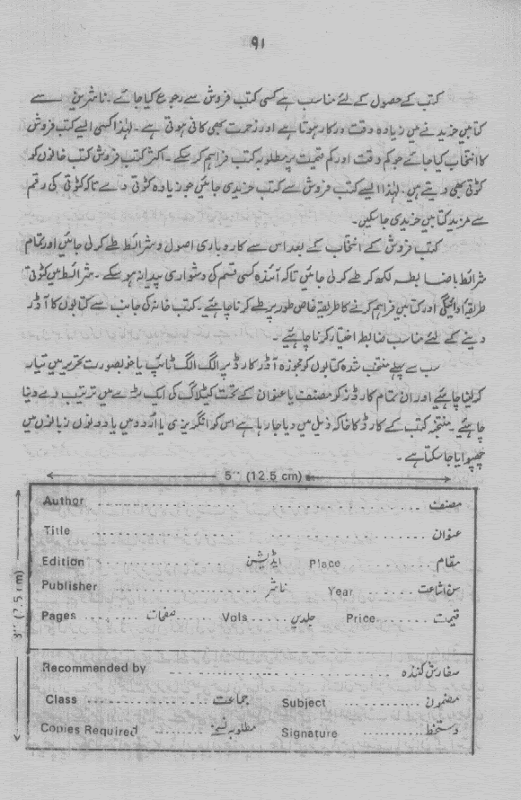 ۹۱
کتب کے حصول کے لئے مناسب ہے کسی کتب فروش سے رجوع کیا جائے ۔ ناشرین سے
کتابیں خریدنے میں زیادہ وقت درکار ہوتا ہے اور زحمت بھی کافی ہوتی ہے ۔ لہٰذا کسی ایسے کتب فروش
کا انتخاب کیا جائے جو کم وقت اور کم قیمت پر مطلوبہ کتب فراہم کر سکے ۔ اکثر کتب فروش کتب خانوں کو
کٹوتی بھی دیتے ہیں ۔ لہٰذا ایسے کتب فروش سے کتب خریدی جائیں جو زیادہ کٹوتی دے تاکہ کٹوتی کی رقم
سے مزید کتابیں خریدی جاسکیں ۔
کتب فروش کے انتخاب کے بعد اس سے کاروباری اصول و شرائط طے کرلی جائیں اور تمام
شرائط باضابطہ لکھ کر طے کرلی جائیں تاکہ آئندہ کسی قسم کی دشواری پیدا نہ ہوسکے ۔ شرائط میں کٹوتی
طریقہ ادائیگی اور کتابیں فراہم کرنے کا طریقہ خاص طور پر طے کرنا چاہیئے ۔ کتب خانہ کی جانب سے کتابوں کا آڈر
دینے کے لئے مناسب ضابطہ اختیار کرنا چاہئیے ۔
سب سے پہلے منتخب شدہ کتابوں کو مجوزہ آڈر کارڈ پر الگ الگ ٹائپ یا خوبصورت تحریر میں تیار
کرلینا چاہئیے اور ان تمام کارڈز کو مصنف یا عنوان کے تحت کیٹلاگ کی ایک ٹرے میں ترتیب دے دینا
چاہئیے ۔ منتخبہ کتب کے کارڈ کا خاکہ ذیل میں دیا جارہا ہے اس کو انگریزی یا اُردو میں یا دونوں زبانوں میں
چھپوایا جاسکتا ہے ۔
5'' (12.5 cm)
3'' (7.5 cm)
Author ........ مصنف
Title ........ عنوان
Edition ایڈیشن Place ........ مقام
Publisher ........ ناشر Year ........ سن اشاعت
Pages ........ صفحات Vols .... جلدیں Price ........ قیمت
Recommended by ........ سفارش کنندہ
Class ........ جماعت Subject ........ مضمون
Copies Required ........ مطلوبہ نسخے Signature ........ دستخط